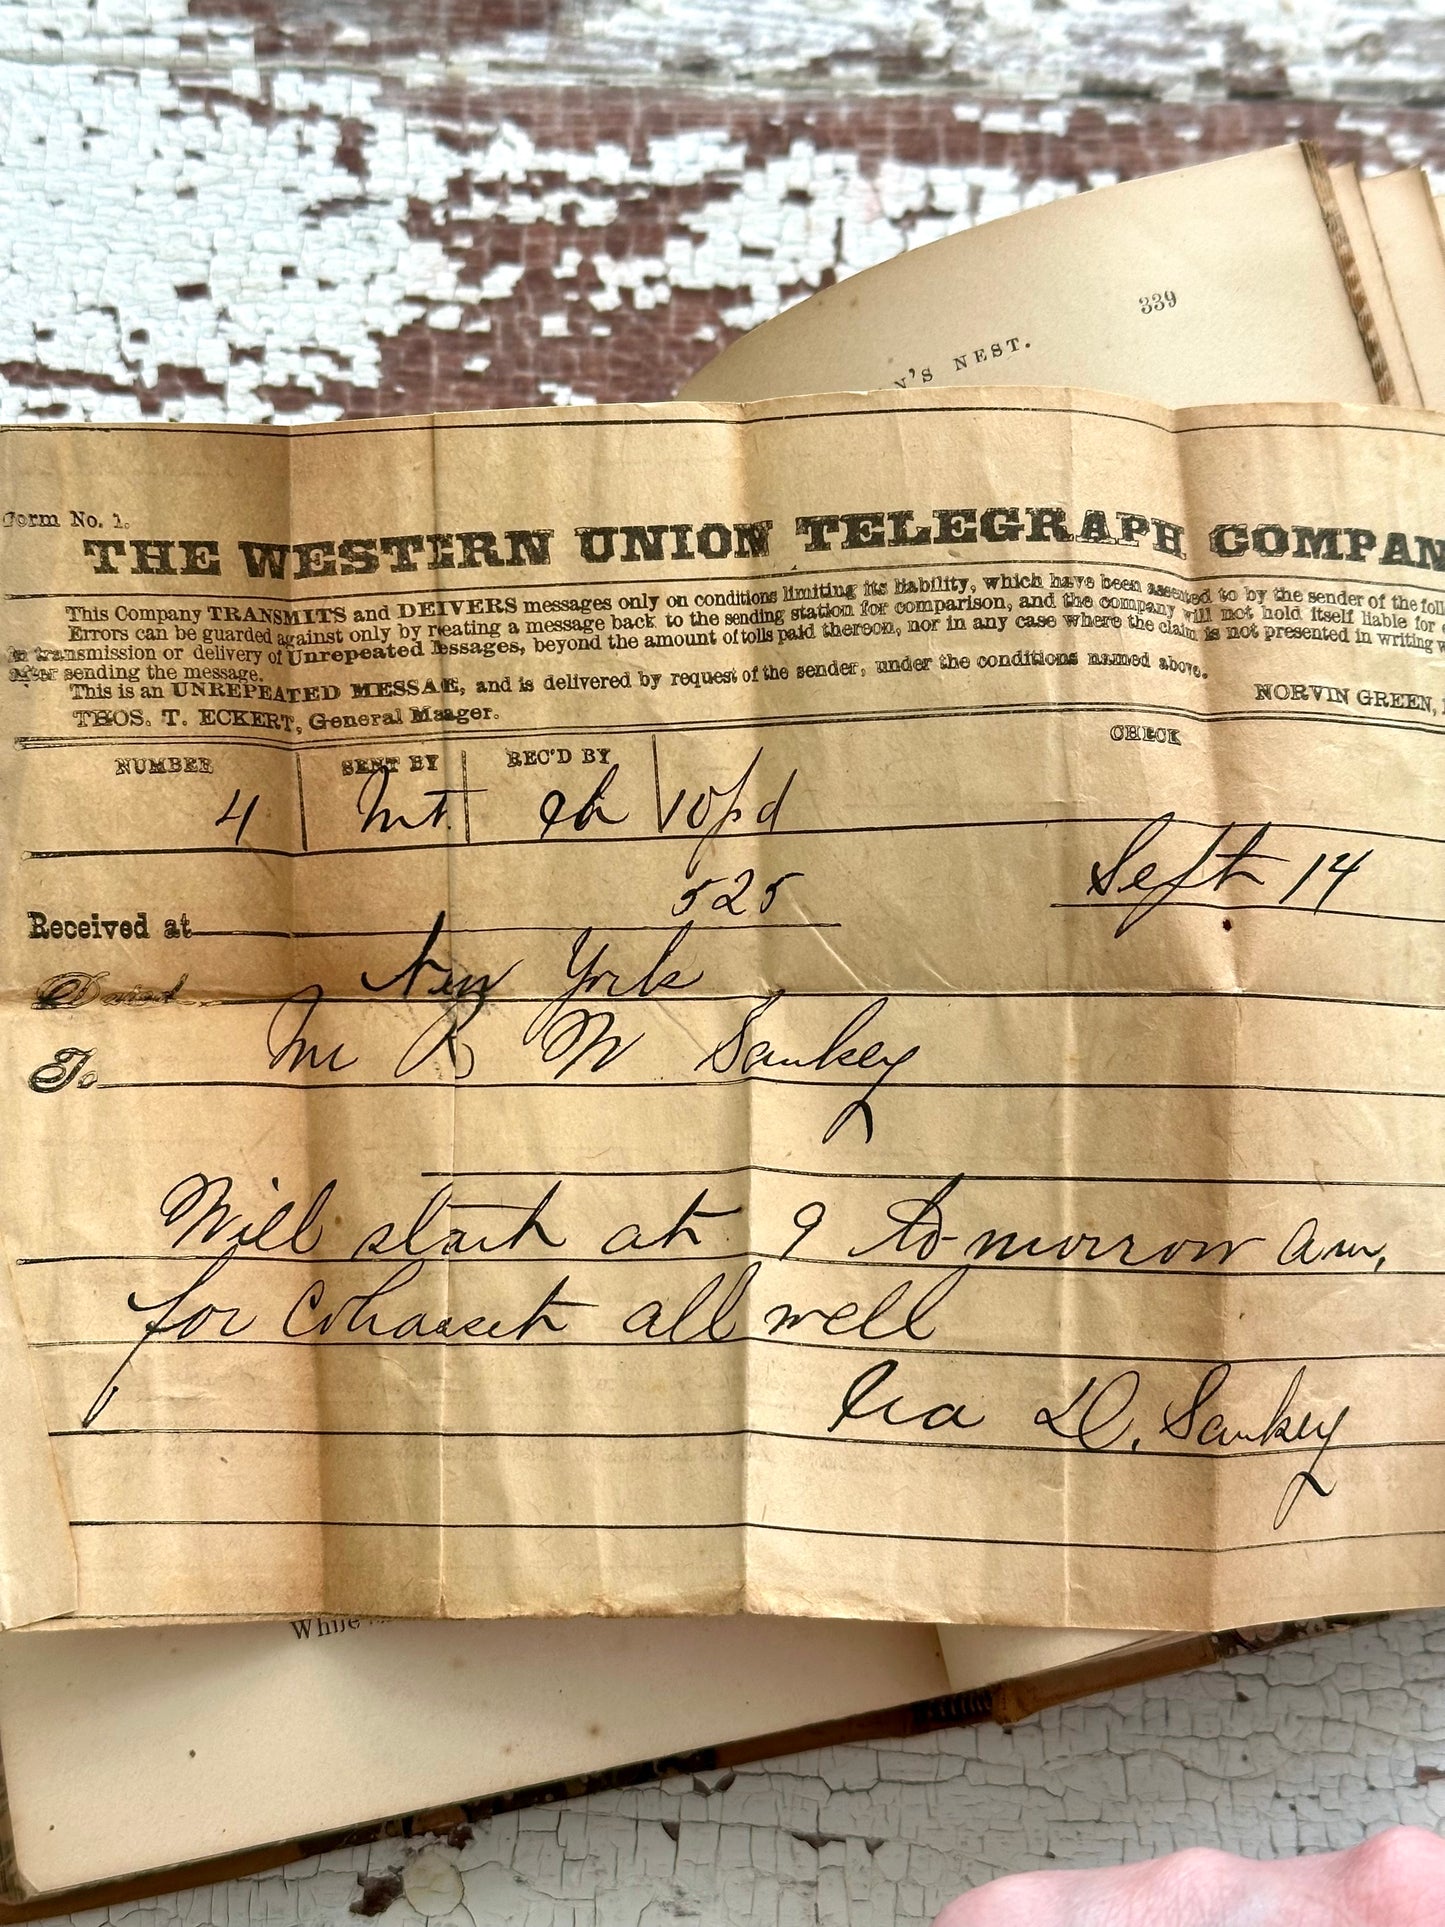 339
N'S NEST.
Form No. 1.
THE WESTERN UNION TELEGRAPH COMPAN
This Company TRANSMITS and DEIVERS messages only on conditions limiting its liability, which have been assented to by the sender of the foll
Errors can be guarded against only by reating a message back to the sending station for comparison, and the company will not hold itself liable for
in transmission or delivery of Unrepeated Messages, beyond the amount of tolls paid thereon, nor in any case where the claim is not presented in writing
after sending the message.
This is an UNREPEATED MESSAE, and is delivered by request of the sender, under the conditions named above.
THOS. T. ECKERT, General Maager.
NORVIN GREEN,
NUMBER SENT BY REC'D BY CHECK
4 Mt. Ch 10pd
525 Sept 14
Received at
Dated New York
To Mr R W Sankey
Will start at 9 to-morrow am,
for Cohasset all well
Ira D. Sankey
While